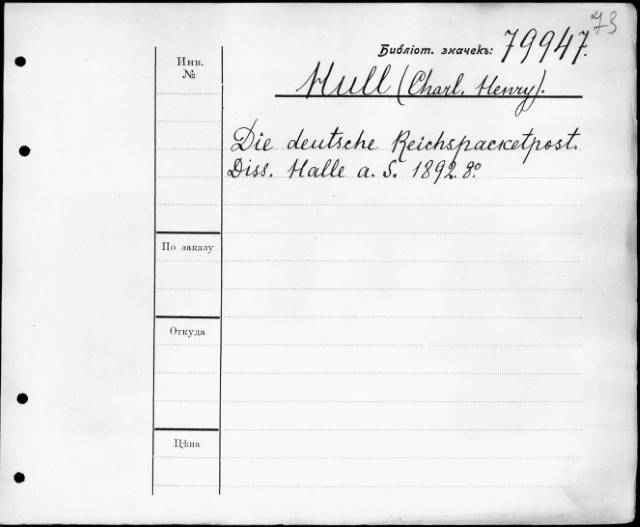 73
Библіот. значекъ: 79947.
Инв.
№
Hull (Charl. Henry).
Die deutsche Reichspacketpost.
Diss. Halle a. S. 1892. 8º
По заказу
Откуда
Цѣна